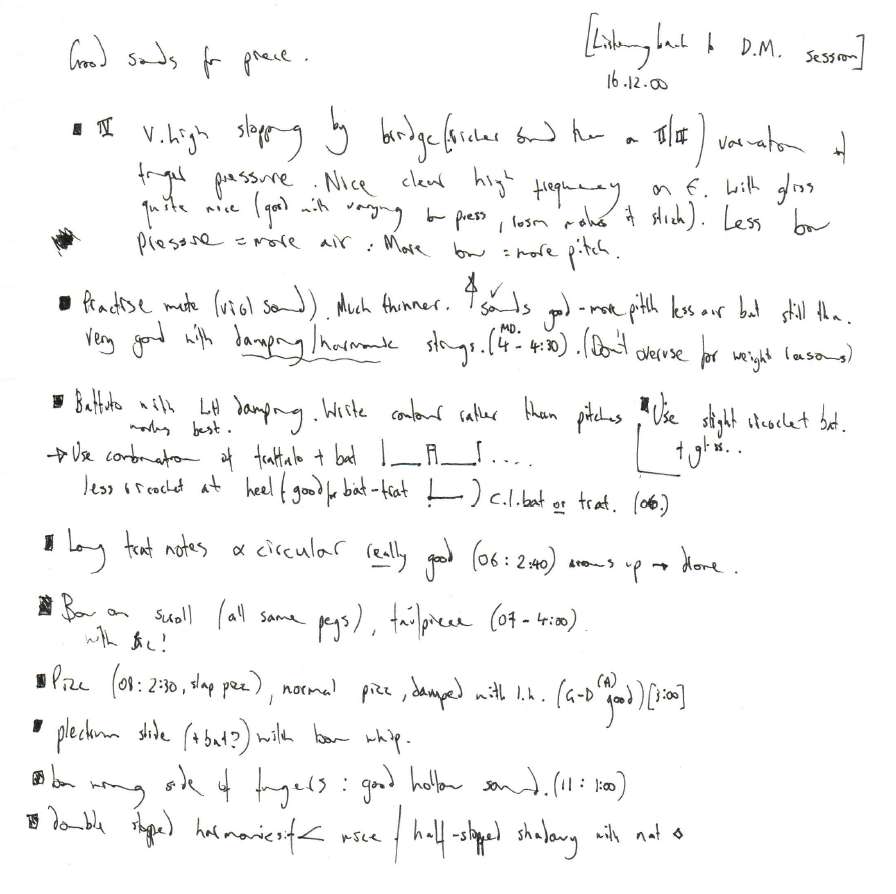 Good sounds for piece.
[Listening back to D.M. session]
16.12.00
■ IV V.high stopping by bridge (richer sound than on II/III) variation of
finger pressure. Nice clear high frequency on E. With gliss
quite nice (good with varying bow press, rosin makes it stick). Less bow
pressure = more air : More bow = more pitch.
■ Practise mute (viol sound). Much thinner. ↑ sounds good - more pitch less air but still thin.
very good with damping/harmonic strings. (MD. 4 - 4:30). (Don't overuse for weight reasons)
■ Battuto with LH damping. Write contour rather than pitches
works best.
■ Use slight ricochet bat.
+ gliss..
→ Use combination of trattato + bat ....
less ricochet at heel (good for bat-trat ) c.l.bat or trat. (06.)
■ Long trat notes α circular really good (06: 2:40) up → drone.
■ Bow on scroll (all same pegs), tailpiece (07 - 4:00)
with !
■ Pizz (08: 2:30, slap pizz), normal pizz, damped with l.h. (G-D (A) good) [3:00]
■ plectrum slide (+ bat?) with bow whip.
■ bow wrong side of fingers : good hollow sound. (11: 1:00)
■ double stopped harmonics < nice / half-stopped shadowy with nat ◇